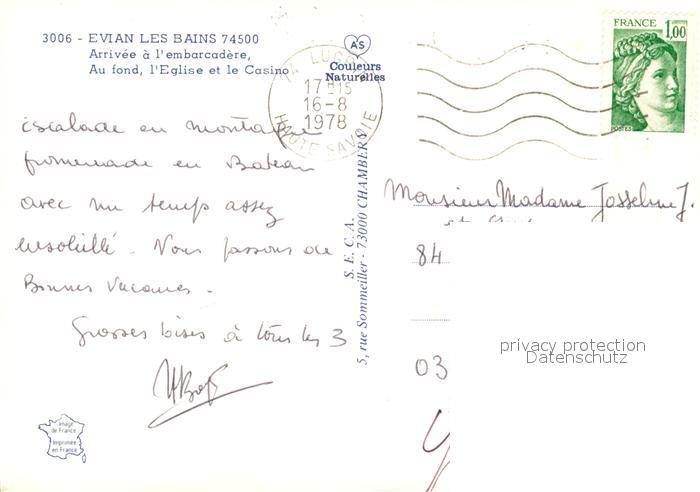 3006 - EVIAN LES BAINS 74500
Arrivée à l'embarcadère,
Au fond, l'Eglise et le Casino
AS
Couleurs
Naturelles
74 LUG
17H15
16-8
1978
HAUTE SAVOIE
FRANCE 1,00
POSTES
Escalade en montagne
promenade en Bateau
avec un temps assez
ensoleillé. Nous passons de
Bonnes Vacances.
Grosses bises à tous les 3
S. E. C. A.
5, rue Sommeiller - 73000 CHAMBERY
Monsieur Madame Josseline J.
84
03
privacy protection
Datenschutz
Image
de France
Imprimée
en France